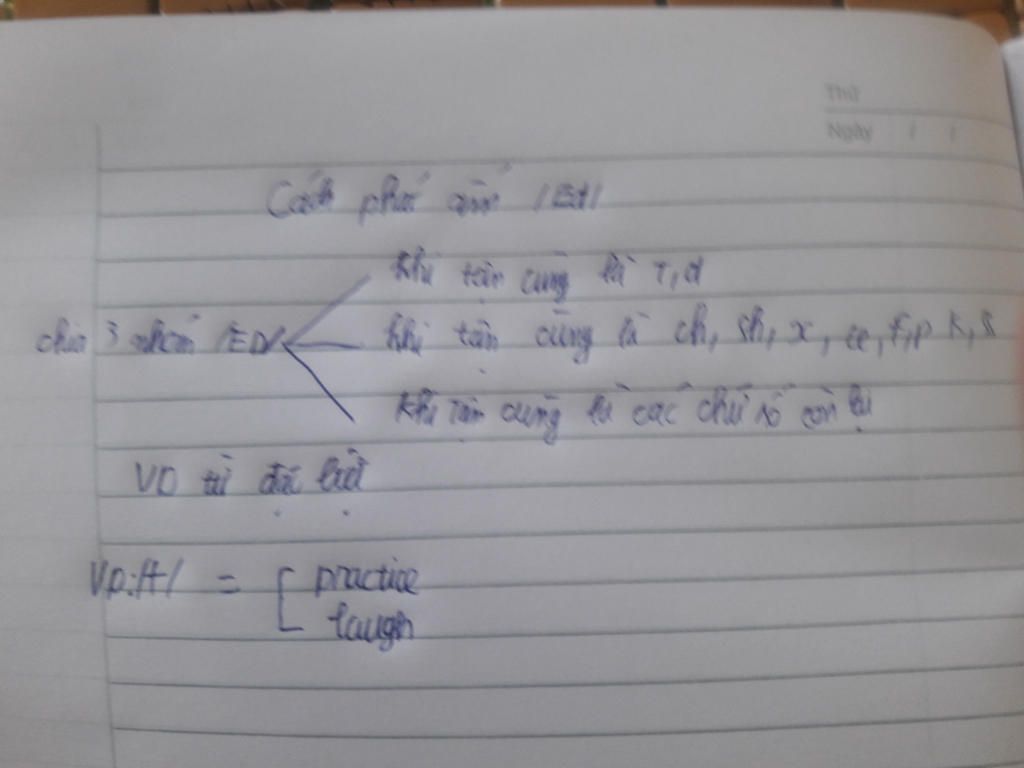 Thứ
Ngày / /
Cách phát âm /Ed/
khi tận cùng là T, d
chia 3 nhóm /ED/ khi tận cùng là ch, sh, x, ce, f, p, k, s
khi tận cùng là các chữ số còn lại
VD từ đặc biệt
VD: /t/ = practice
laugh